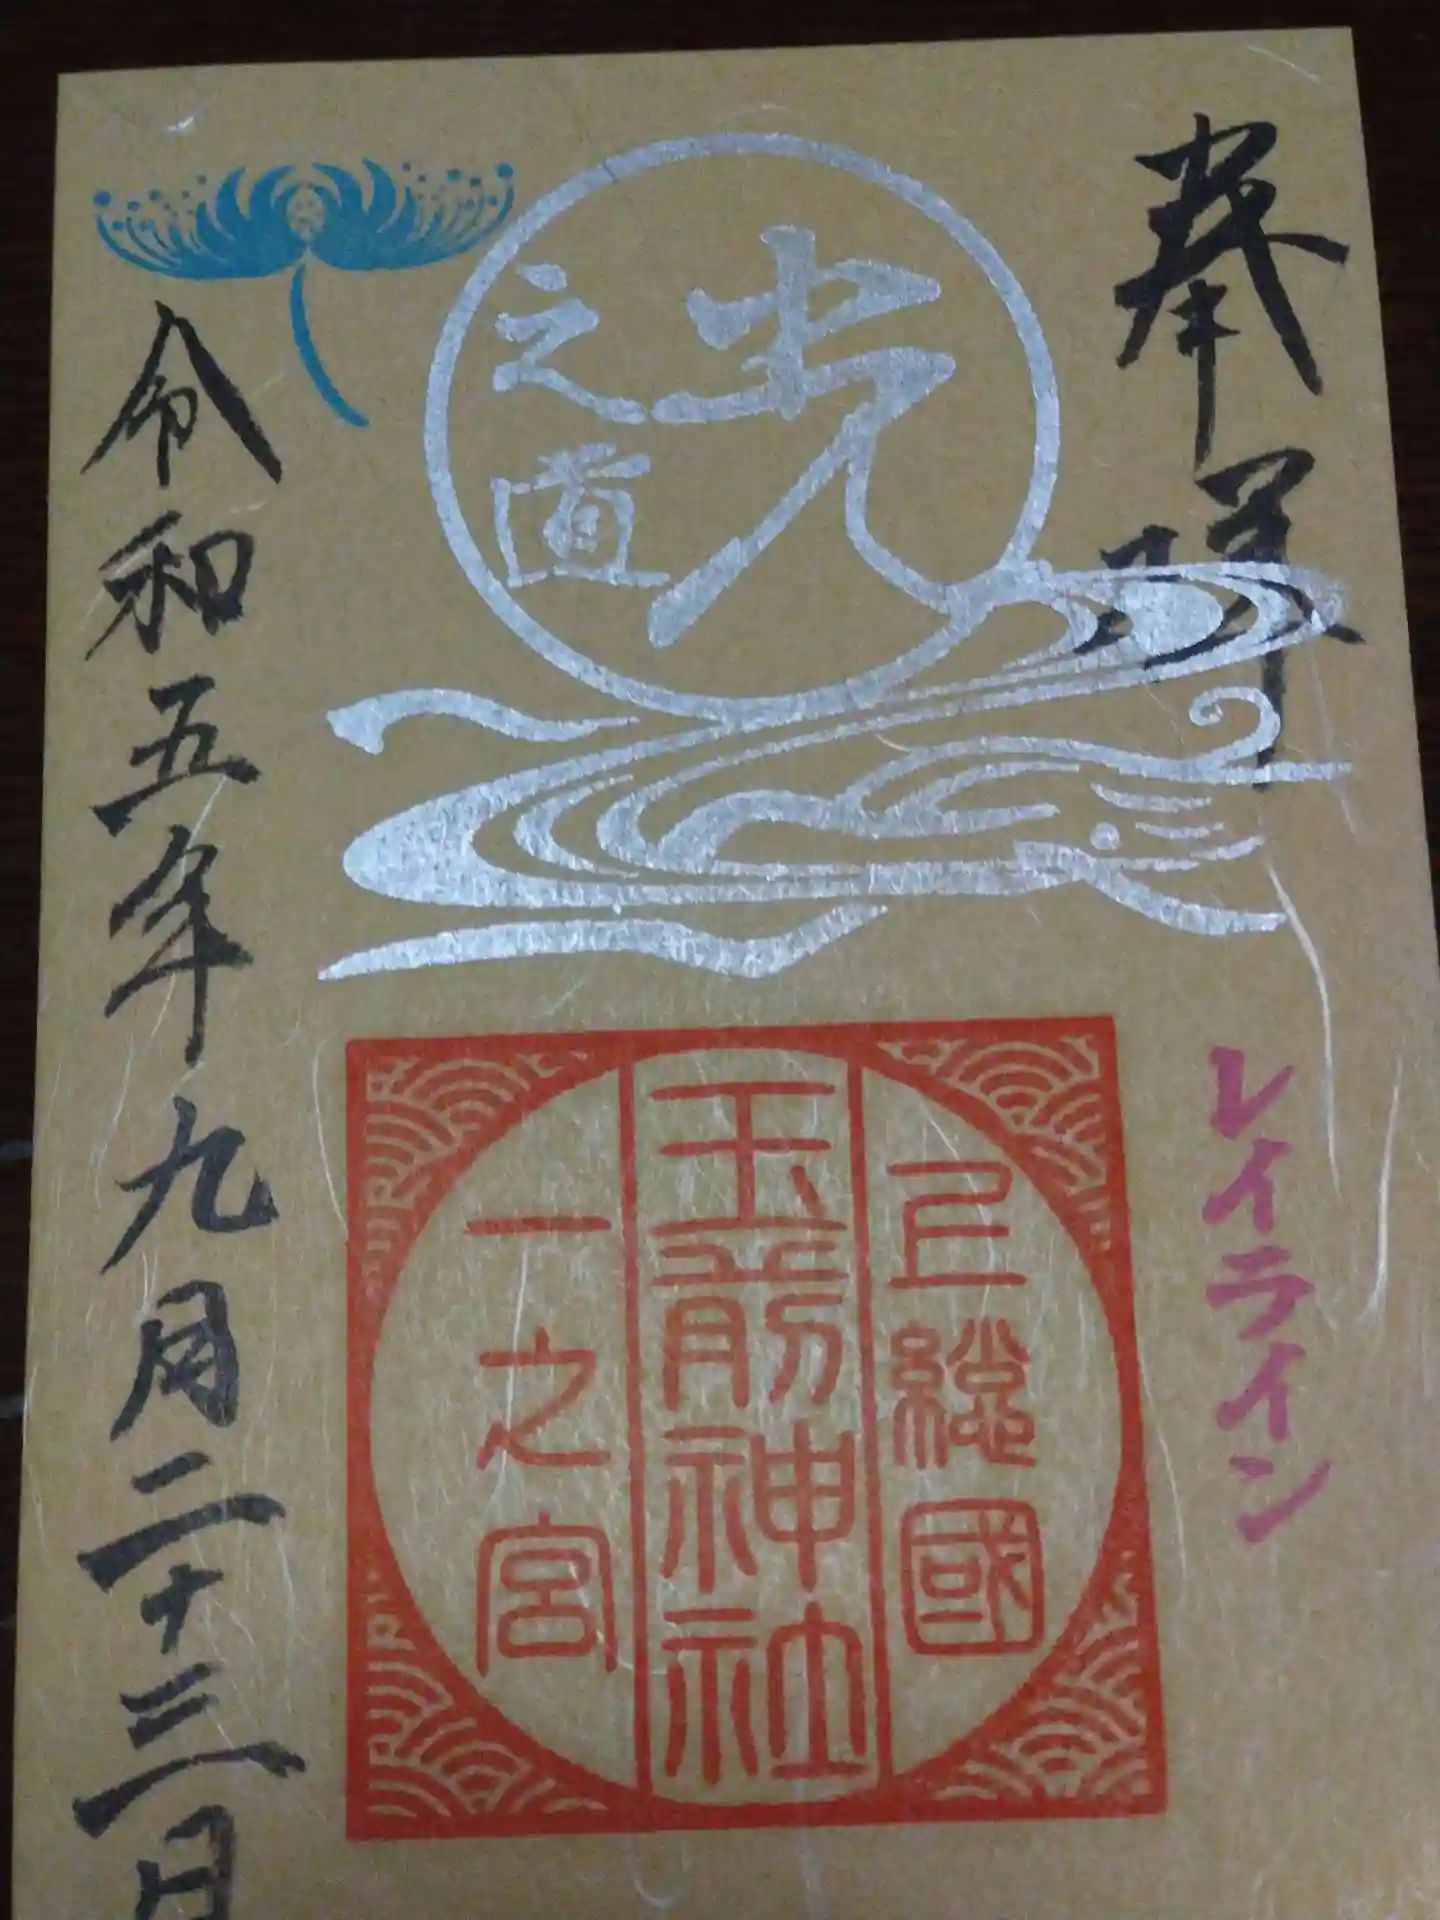 奉拝
レイライン
光
之道
上総國
玉前神社
一之宮
令和五年九月二十三日